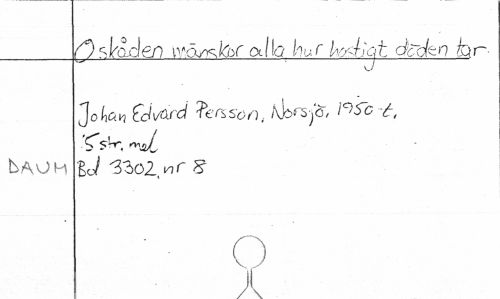 O skåden mänskor alla hur hastigt döden tar
Johan Edvard Persson, Norsjö, 1950-t.
5 str. mel
DAUM Bd 3302, nr 8